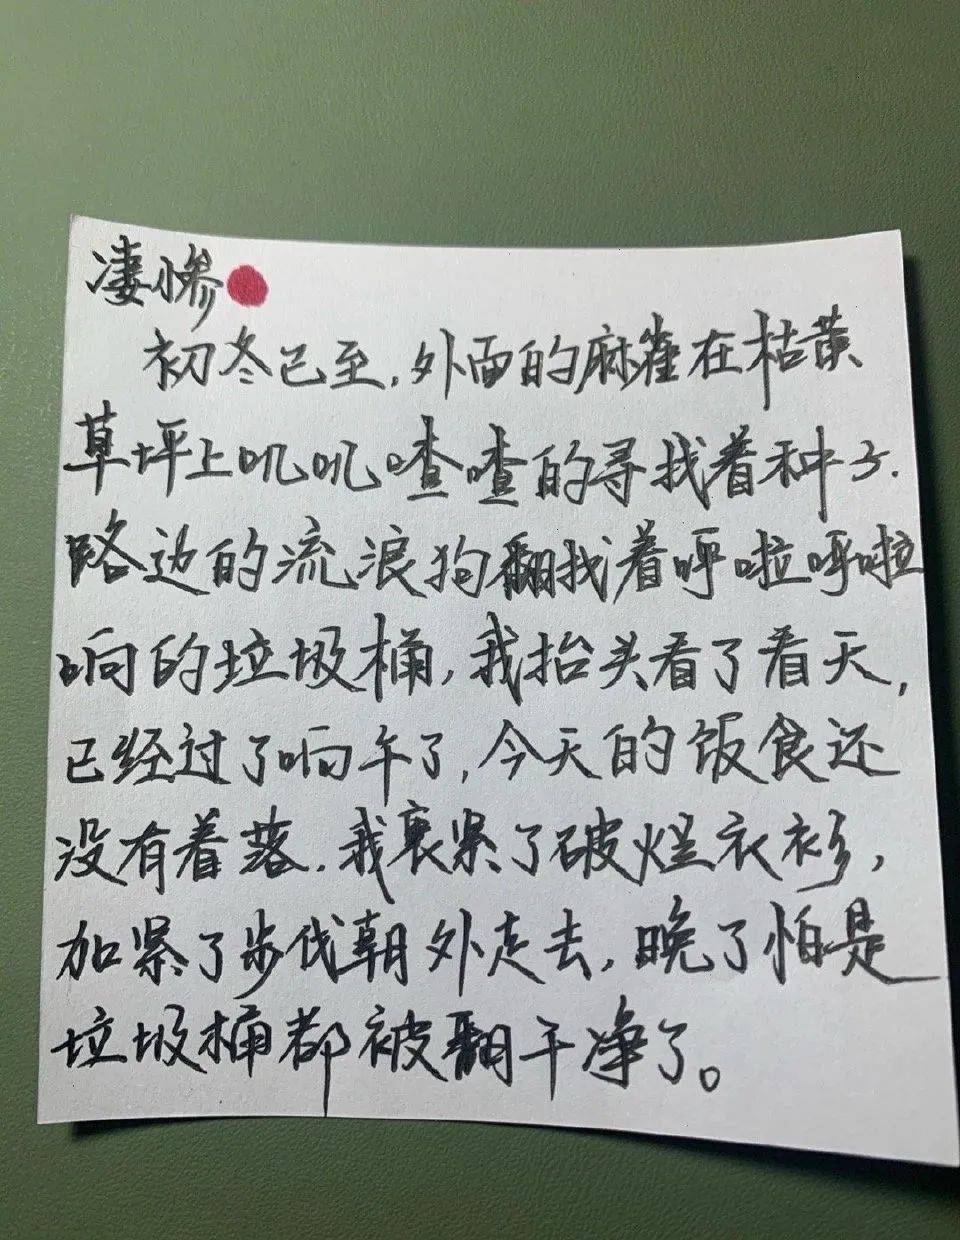 凄惨
初冬已至,外面的麻雀在枯黄
草坪上叽叽喳喳的寻找着种子.
路边的流浪狗翻找着呼啦呼啦
响的垃圾桶,我抬头看了看天,
已经过了响午了,今天的饭食还
没有着落.我裹紧了破烂衣衫,
加紧了步伐朝外走去,晚了怕是
垃圾桶都被翻干净了。